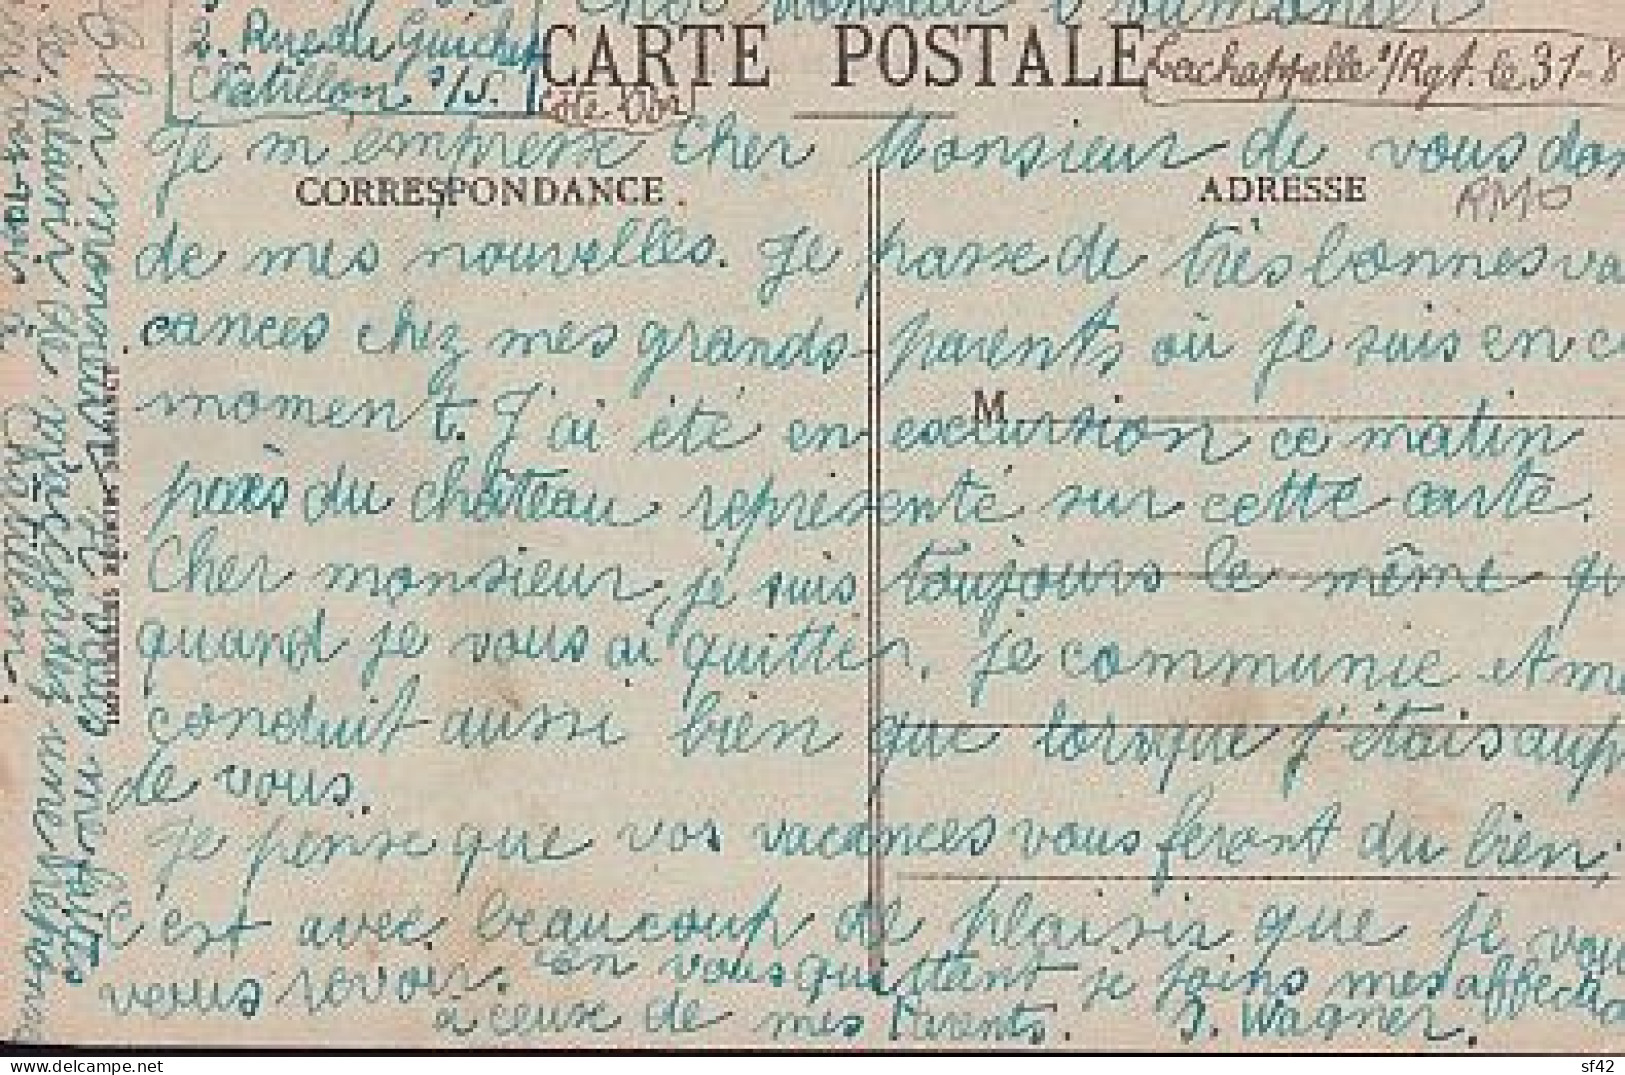 Cher Monsieur l'aumonier
2. Rue du Guichet
Châtillon s/S.
Côte-d'or
CARTE POSTALE
Lachappelle s/Rgt. le 31-8
Je m'empresse Cher Monsieur de vous don
CORRESPONDANCE
ADRESSE
RMO
de mes nouvelles. Je passe de très bonnes va
cances chez mes grands-parents où je suis en ce
moment. J'ai été en excursion ce matin
M
près du château représenté sur cette carte.
Cher monsieur, je suis toujours le même qu
quand je vous ai quitter. Je communie et me
conduit aussi bien que lorsque j'étais aup
de vous.
Je pense que vos vacances vous feront du bien,
C'est avec beaucoup de plaisir que je vous
vous revoir. En vous quittant je joins mes affectio
à ceux de mes Parents. J. Wagner.
Cher monsieur l'aumonier
si le plaisir de
Châtillon
une réponse
sf42